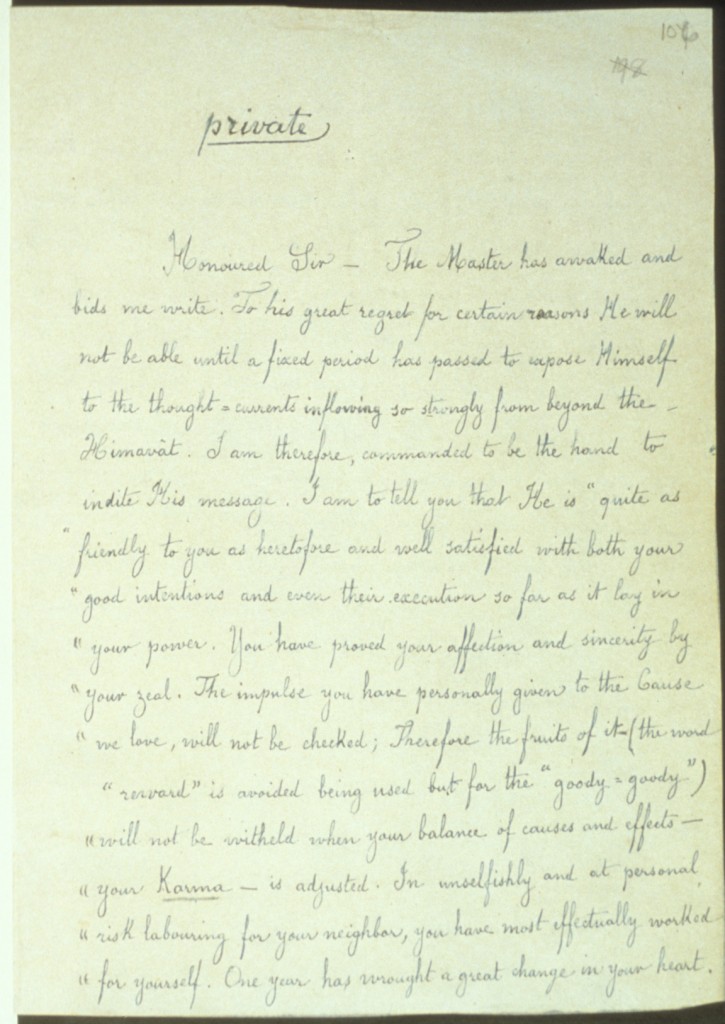 106
98
private
Honoured Sir — The Master has awaked and
bids me write. To his great regret for certain reasons He will
not be able until a fixed period has passed to expose Himself
to the thought=currents inflowing so strongly from beyond the –
Himavàt. I am therefore, commanded to be the hand to
indite His message. I am to tell you that He is "quite as
"friendly to you as heretofore and well satisfied with both your
"good intentions and even their execution so far as it lay in
"your power. You have proved your affection and sincerity by
"your zeal. The impulse you have personally given to the Cause
"we love, will not be checked; Therefore the fruits of it – (the word
"reward" is avoided being used but for the "goody=goody")
"will not be witheld when your balance of causes and effects —
"your Karma — is adjusted. In unselfishly and at personal
"risk labouring for your neighbor, you have most effectually worked
"for yourself. One year has wrought a great change in your heart.